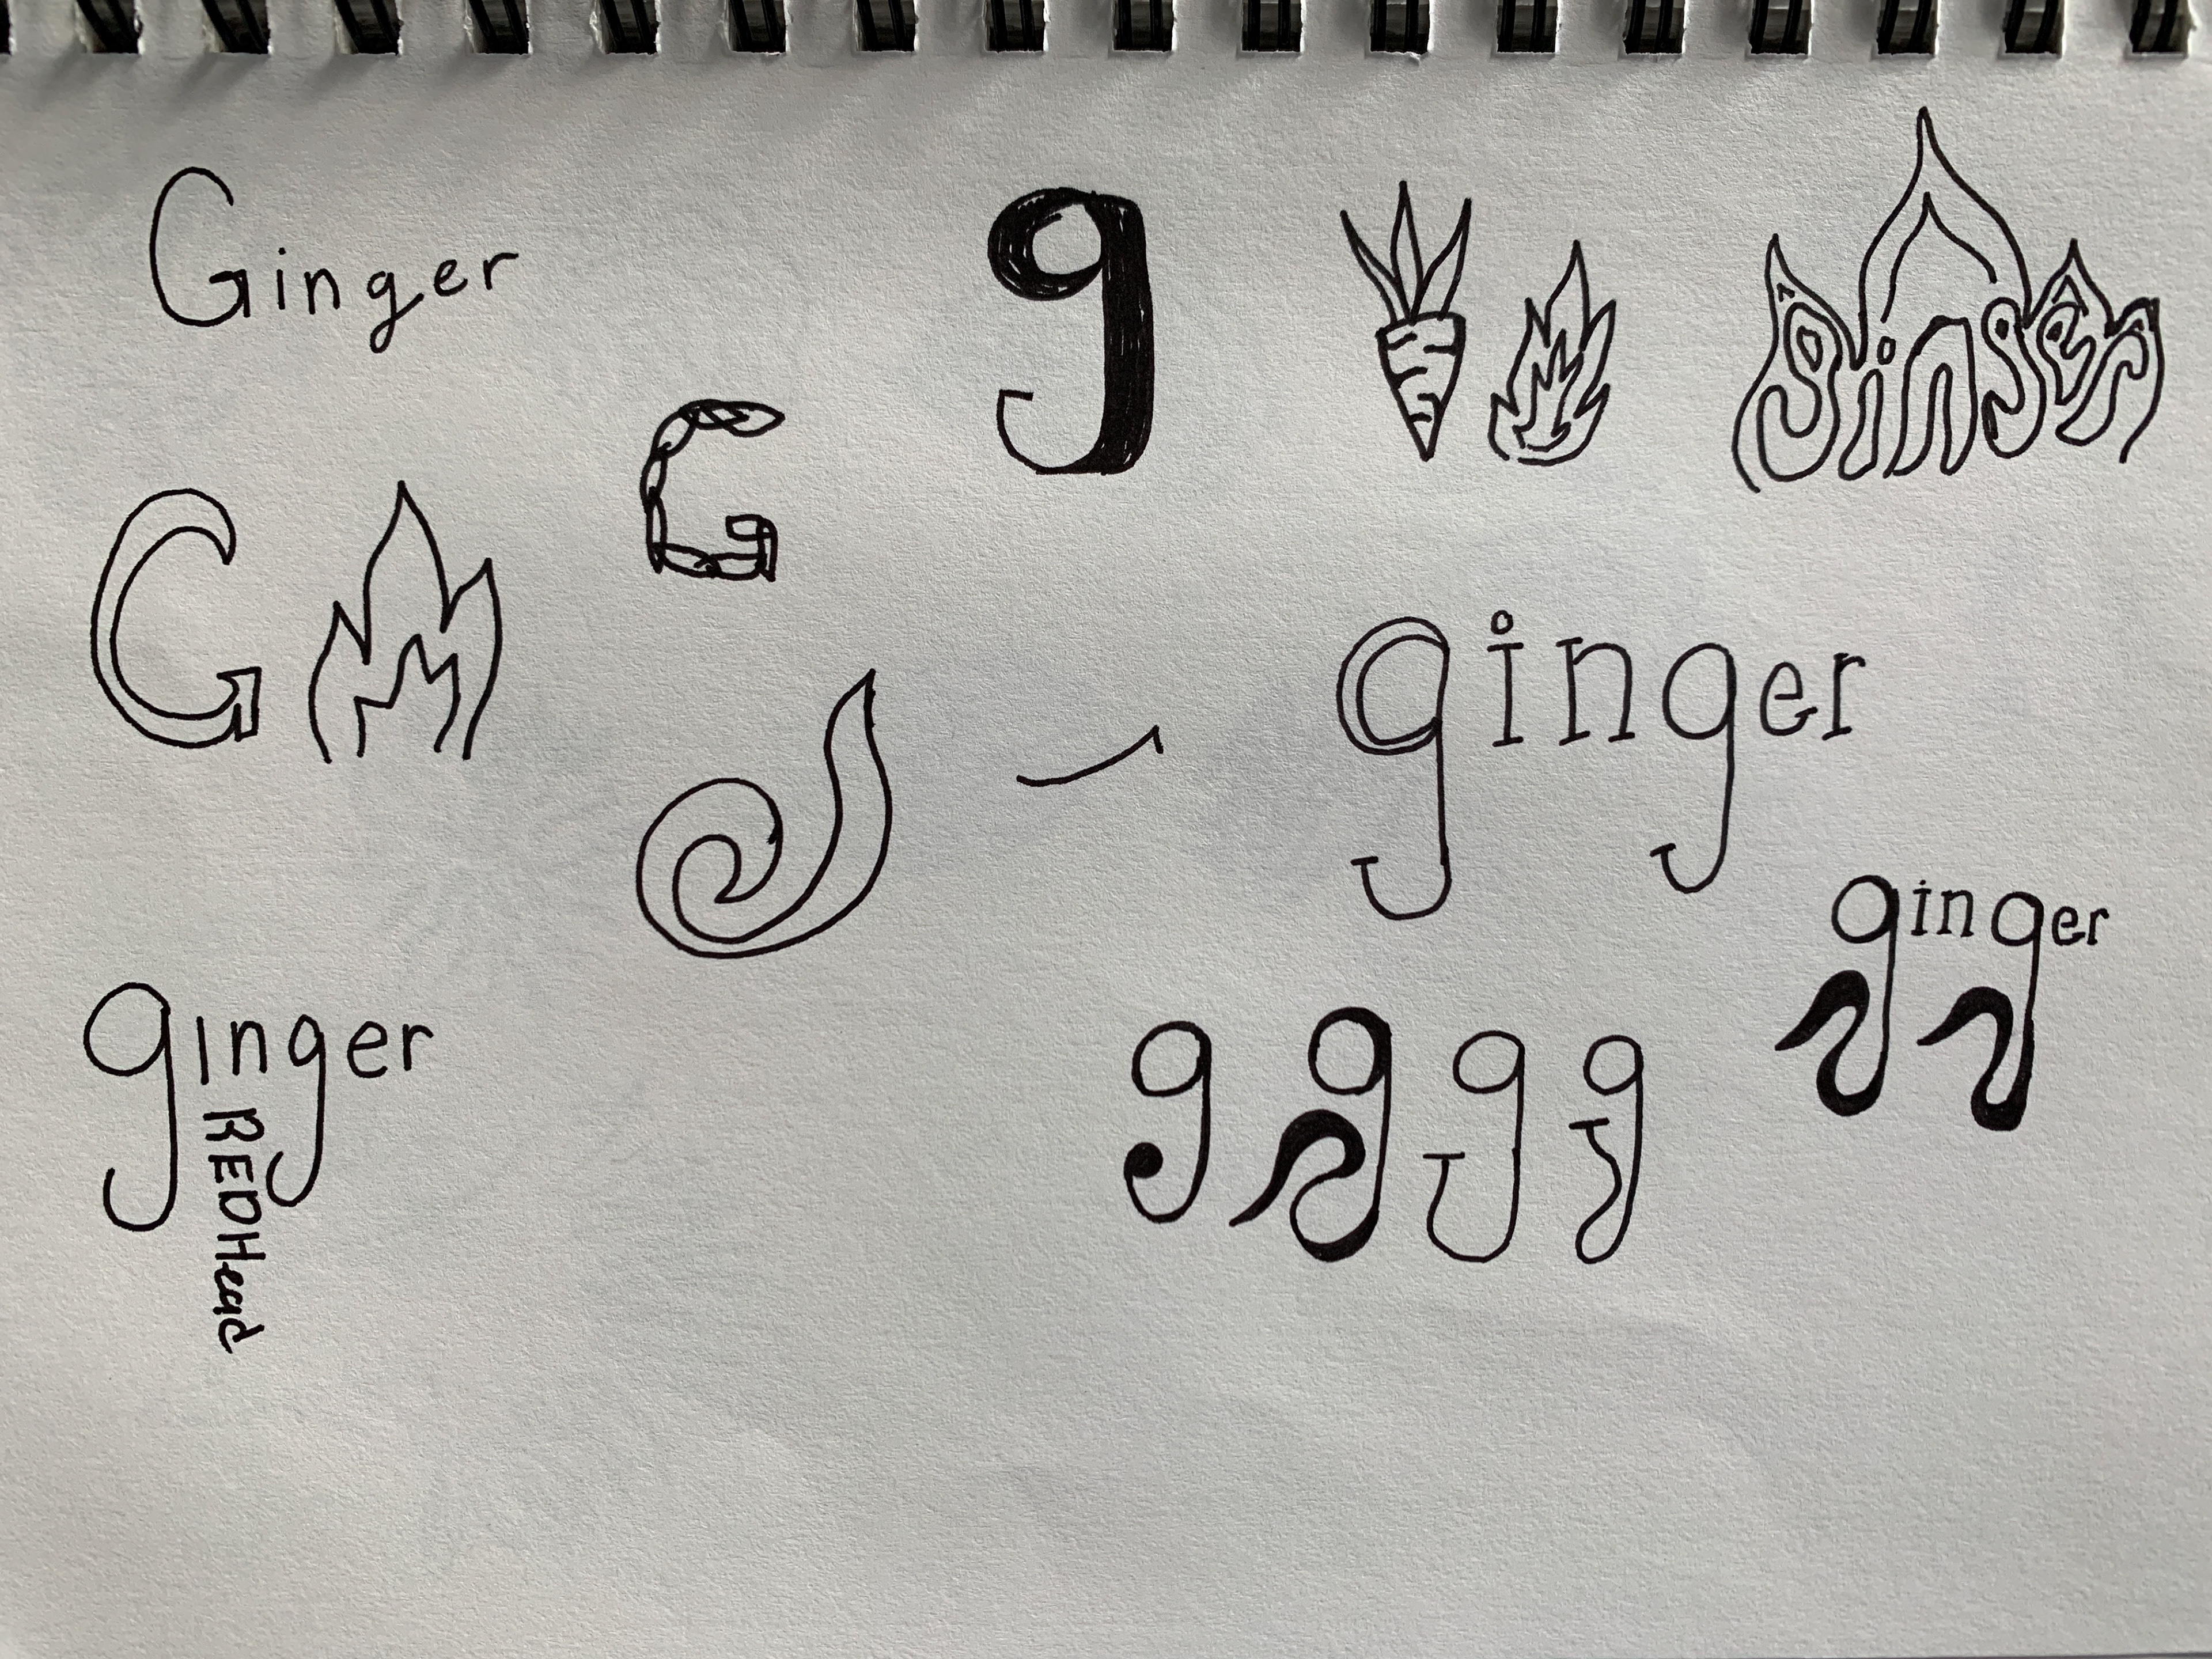 Ginger
g
ginger
G
G
ginger
ginger
ginger
REDHead
g g g g